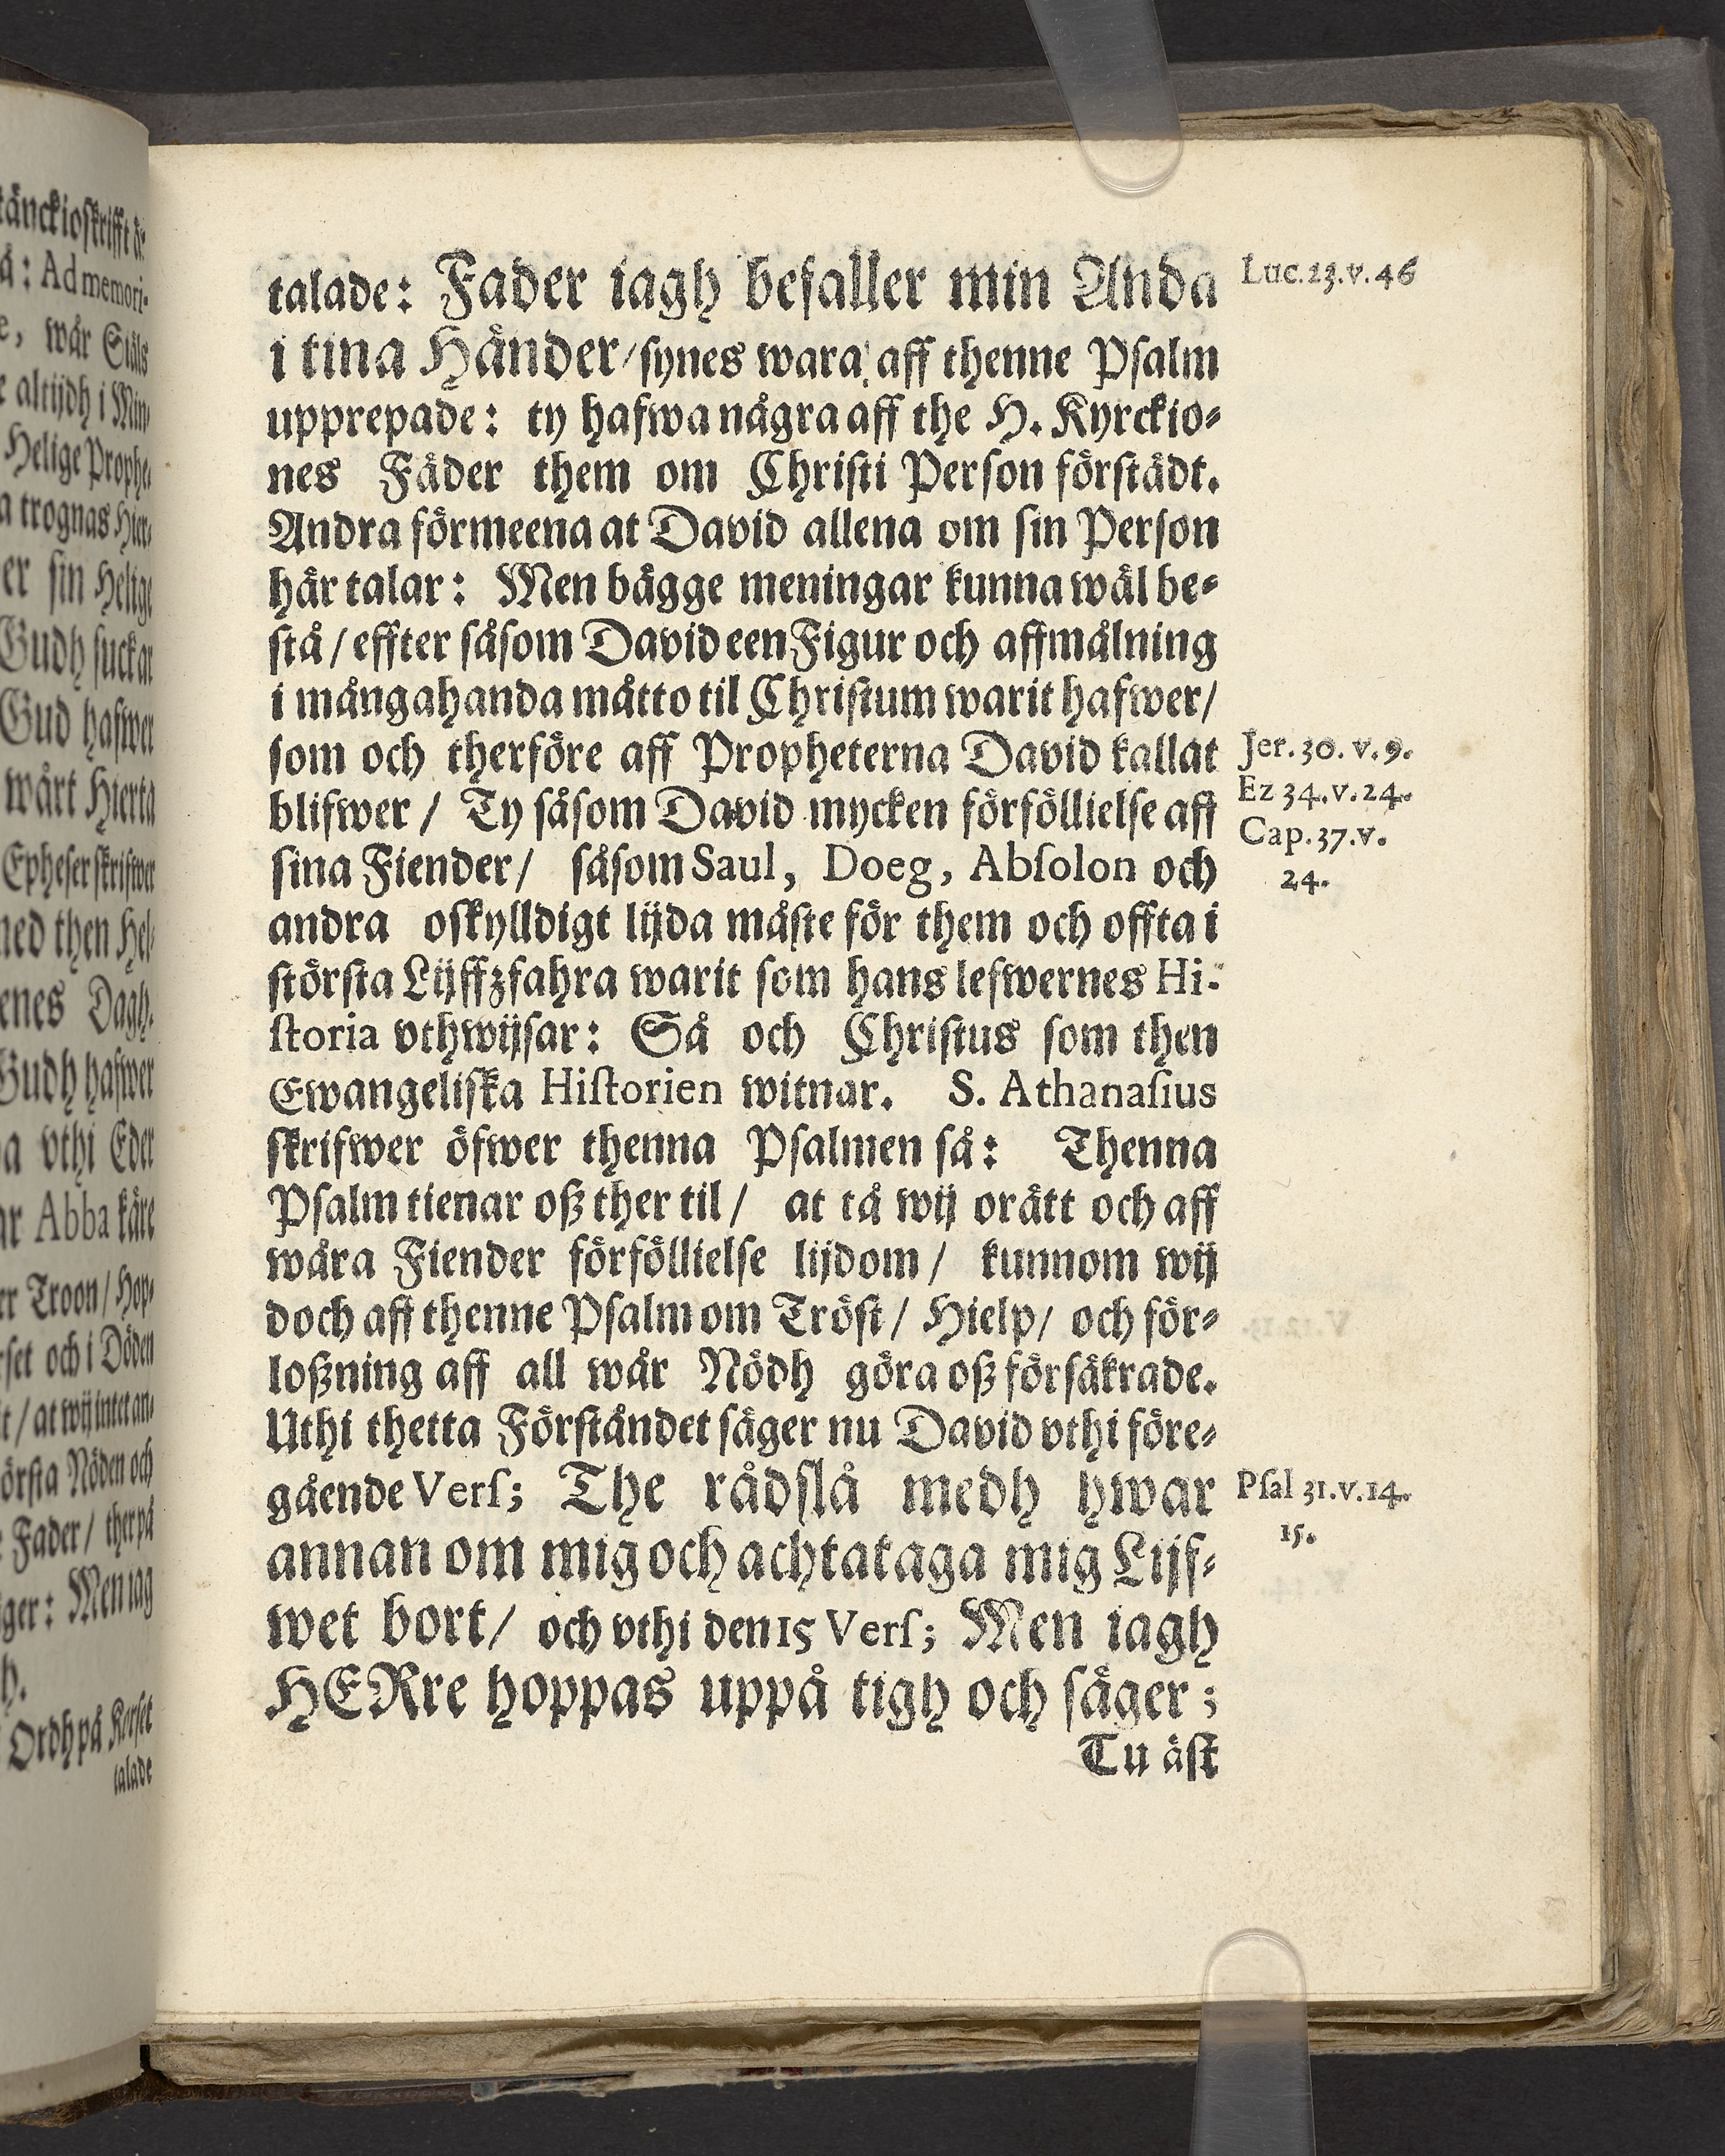 tänckioskrifft
å: Ad memori-
e, wår Siäls
e altijdh i Min-
Helige Prophe-
a trognas Hier-
er sin Helige
Gudh suckar
Gud hafwer
wårt Hierta
Epheser skrifwer
med then Hel-
enes Dagh.
Gudh hafwer
a vthi Eder
ar Abba käre
er Troon / Hop-
rset och i Döden
t / at wij intet an-
örsta Nöden och
e Fader / ther på
ger: Men iag
h.
Ordh på Korset
talade
talade: Fader iagh befaller min Anda
i tina Händer / synes wara aff thenne Psalm
upprepade: ty hafwa några aff the H. Kyrckio-
nes Fäder them om Christi Person förstådt.
Andra förmeena at David allena om sin Person
här talar: Men bägge meningar kunna wäl be-
stå / effter såsom David een Figur och affmålning
i mångahanda måtto til Christum warit hafwer /
som och therföre aff Propheterna David kallat
blifwer / Ty såsom David mycken förföllielse aff
sina Fiender / såsom Saul, Doeg, Absolon och
andra oskylldigt lijda måste för them och offta i
största Lijffzfahra warit som hans lefwernes Hi-
storia vthwijsar: Så och Christus som then
Ewangeliska Historien witnar. S. Athanasius
skrifwer öfwer thenna Psalmen så: Thenna
Psalm tienar oß ther til / at tå wij orätt och aff
wåra Fiender förföllielse lijdom / kunnom wij
doch aff thenne Psalm om Tröst / Hielp / och för-
loßning aff all wår Nödh göra oß försäkrade.
Uthi thetta Förståndet säger nu David vthi före-
gående Vers; The rådslå medh hwar
annan om mig och achta taga mig Lijf-
wet bort / och vthi den 15 Vers; Men iagh
HERre hoppas uppå tigh och säger;
Tu äst
Luc. 23. v. 46
Jer. 30. v. 9.
Ez 34. v. 24.
Cap. 37. v.
24.
Psal 31. v. 14.
15.